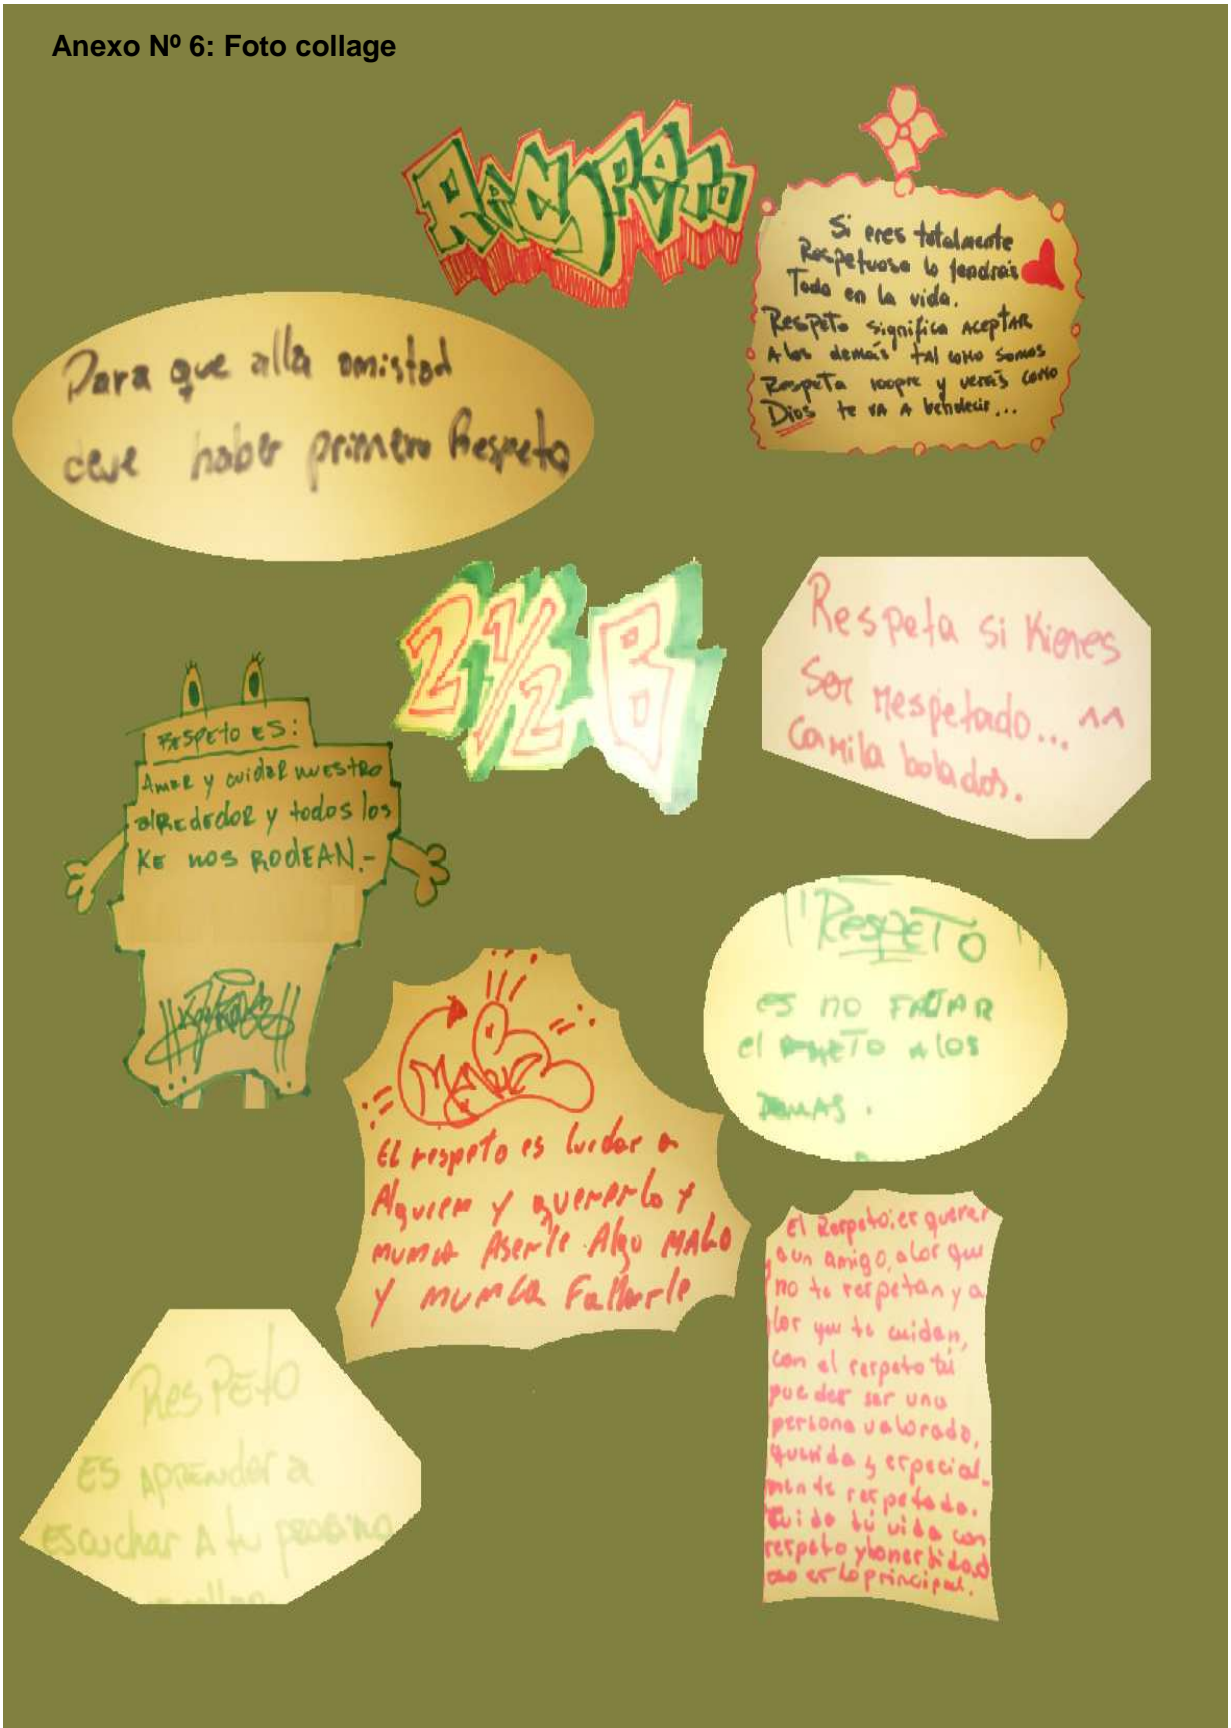 Anexo Nº 6: Foto collage
Respeto
Si eres totalmente
Respetuoso lo tendrás
Todo en la vida.
Respeto significa ACEPTAR
A los demás tal como somos
Respeta y verás como
Dios te va A bendecir...
Para que alla amistad
deve haber primero Respeto
2½ B
Respeta si Kieres
Ser respetado... ^^
Camila bolados.
RESPETO ES:
Amar y cuidar nuestro
alrededor y todos los
KE NOS RODEAN.-
"RespETO
es no FALTAR
el RESPETO A los
DEMAS.
El respeto es cuidar a
Alguien y quererlo y
nunca Aserle Algo MALO
y nunca Fallarle
El Respeto: es querer
a un amigo, a los que
no te respetan y a
los que te cuidan,
con el respeto tú
puedes ser una
persona valorada,
querida y especial-
mente respetada.
Cuida tú vida con
respeto y honestidad
eso es lo principal.
RESPETO
ES APRENDER a
escuchar A tu